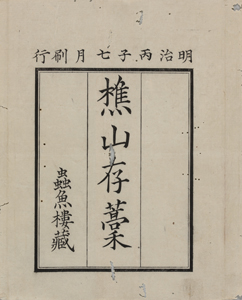 明治丙子七月刷行
樵山存藁
蟲魚樓藏